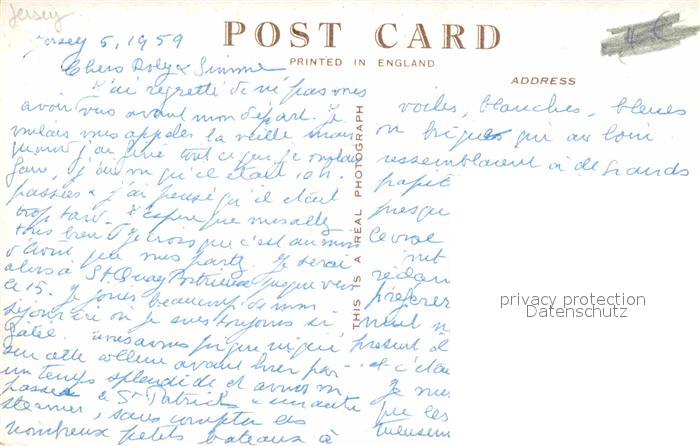 Jersey
Jersey 5, 1959
POST CARD
PRINTED IN ENGLAND
ADDRESS
THIS IS A REAL PHOTOGRAPH
Chers Doly & Simme
J'ai regretté de ne pas vous
avoir vus avant mon départ. Je
voulais vous appeler la veille mais
quand j'ai fini tout ce que je voulais
faire, j'ai vu qu'il était 10 h.
passées & j'ai pensé qu'il était
trop tard. J'espère que vous allez
très bien. Je crois que c'est au mois
d'août que vous partez. Je serai
alors à St. Quay Portrieux jusque vers
le 15. Je jouis beaucoup de mon
séjour ici où je suis toujours si
gâtée. Nous avons pique niqué
sur cette colline avant hier par
un temps splendide et avons vu
passer le St Patrick & un autre
steamer, sans compter les
nombreux petits bateaux à
voiles, blanches, bleues
ou briques qui au loin
ressemblaient à de grands
papil
presque
le vrai
nit
réclam
préférer
présent d
et c'était
Je me
que les
privacy protection
Datenschutz